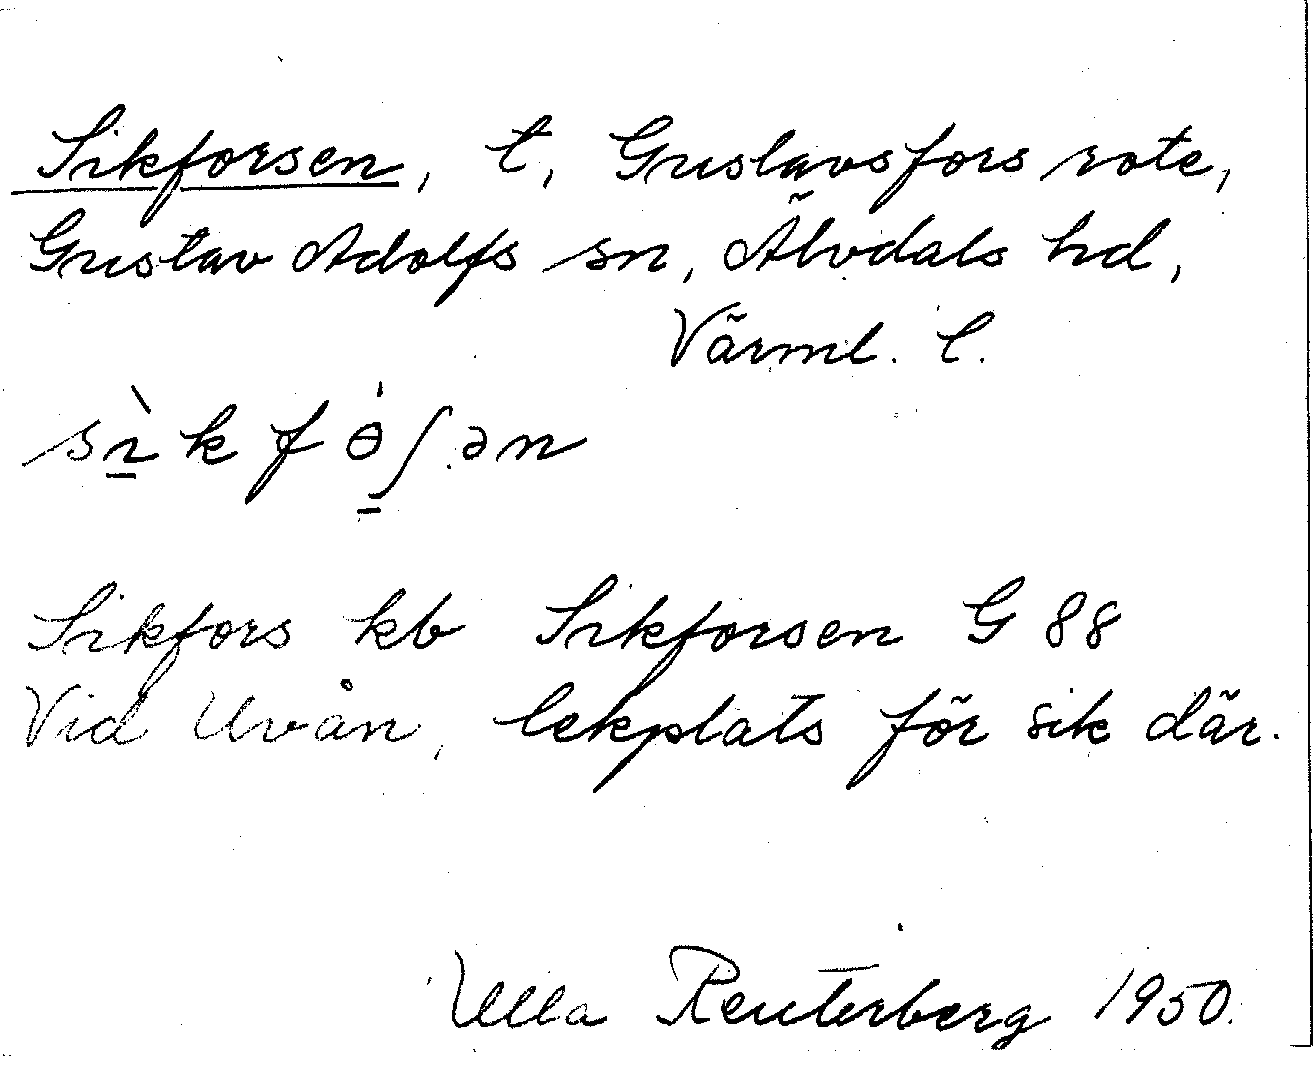 Sikforsen, t, Gustavsfors rote,
Gustav Adolfs sn, Älvdals hd,
Värml. l.
sı̱̀kfɵ̍ʃ̱ən
Sikfors kb Sikforsen G 88
Vid Uvån, lekplats för sik där.
Ulla Reuterberg 1950.